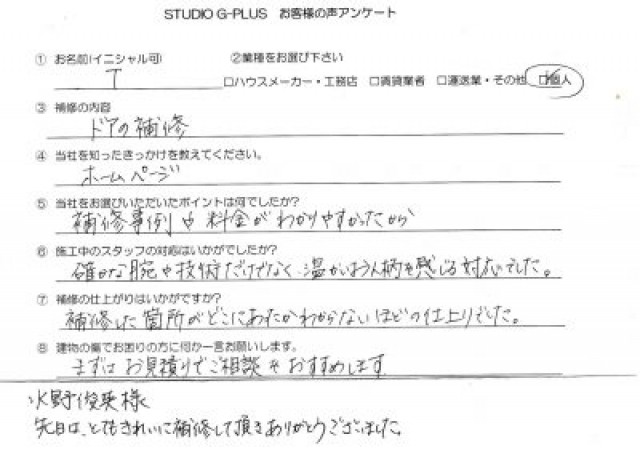 STUDIO G-PLUS お客様の声アンケート
① お名前(イニシャル可) ②業種をお選び下さい
T □ハウスメーカー・工務店 □賃貸業者 □運送業・その他 □個人
③ 補修の内容
ドアの補修
④ 当社を知ったきっかけを教えてください。
ホームページ
⑤ 当社をお選びいただいたポイントは何でしたか?
補修事例や料金がわかりやすかったから
⑥ 施工中のスタッフの対応はいかがでしたか?
確かな腕や技術だけでなく、温かいお人柄を感じる対応でした。
⑦ 補修の仕上がりはいかがですか?
補修した箇所がどこにあったかわからないほどの仕上りでした。
⑧ 建物の傷でお困りの方に何か一言お願いします。
まずはお見積りでご相談をおすすめします
水野俊英様
先日は、とてもきれいに補修して頂きありがとうございました。